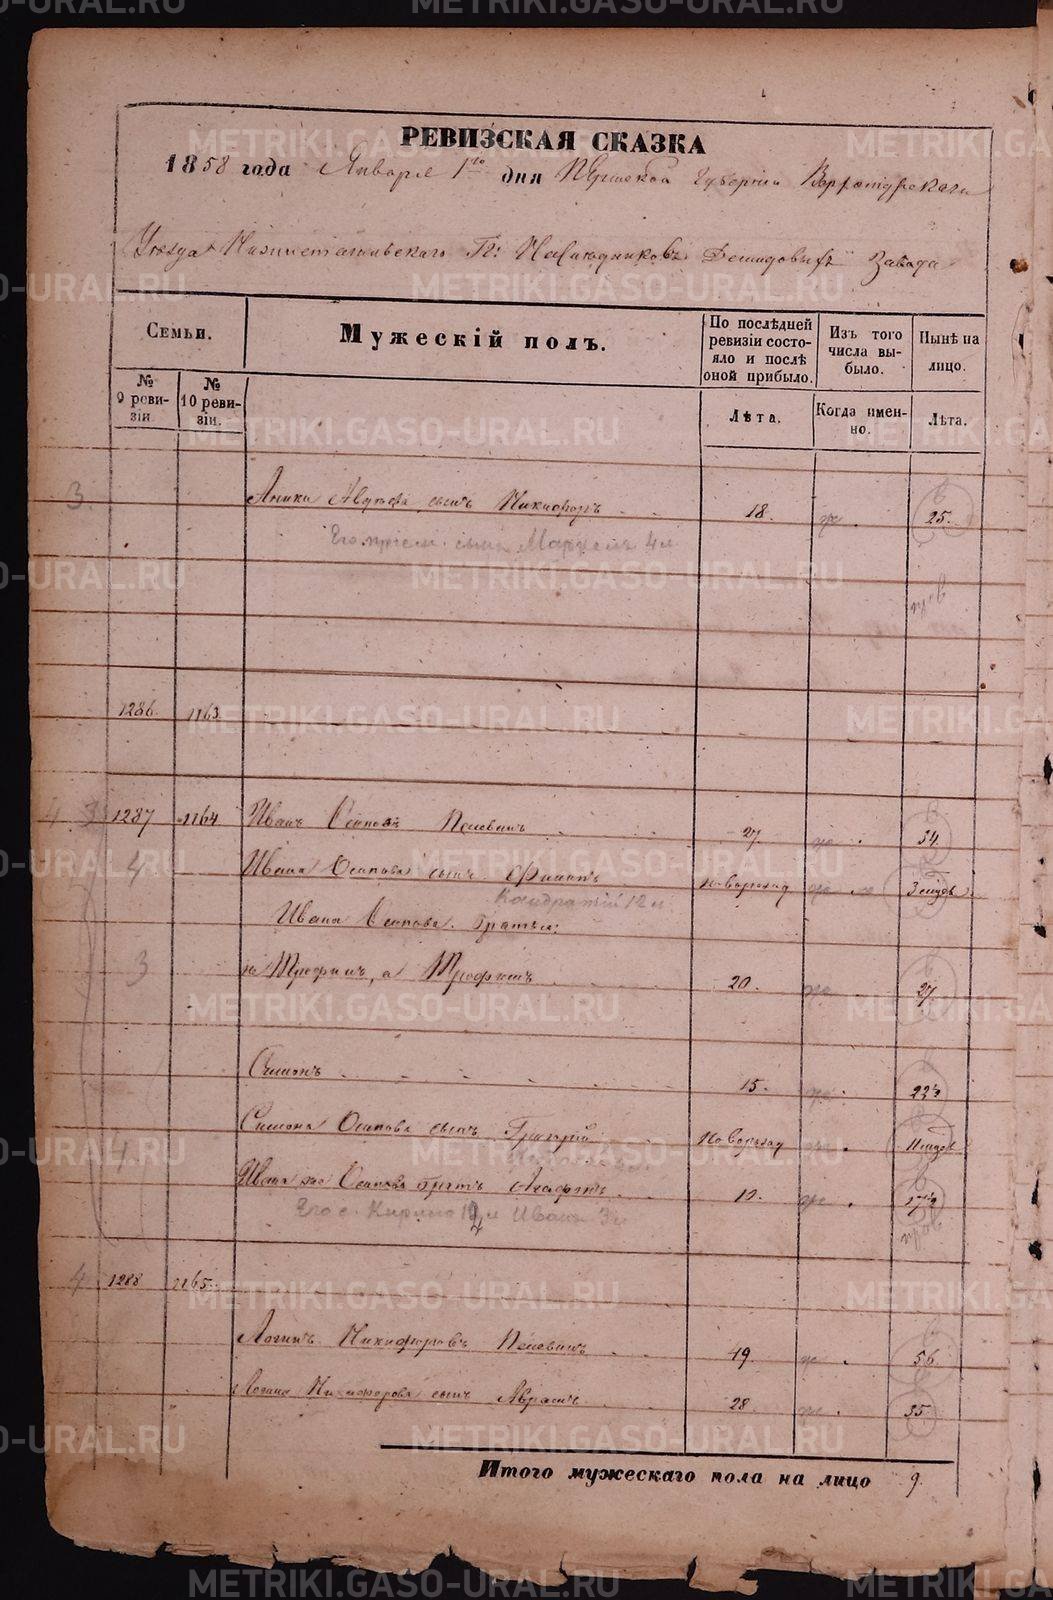 РЕВИЗСКАЯ СКАЗКА
1858 года Января 1го дня Пермской Губернiи Верхотурскаго
Уѣзда Нижнетагильскаго Гг: Наслѣдниковъ Демидовыхъ Завода
Семьи.
Мужескій полъ.
По послѣдней ревизіи состояло и послѣ оной прибыло.
Изъ того числа выбыло.
Нынѣ на лицо.
№ 9 ревизіи.
№ 10 ревизіи.
Лѣта.
Когда именно.
Лѣта.
3. сынъ Никифоръ 18. 25.
Его сынъ 4 л
1286. 1163.
4 3 1287 1164 Иванъ Осиповъ Пелевинъ 27 54.
4 Ивана Осипова сынъ Филатъ новорожд 3 мѣсд
Кондратiй 12 л
Ивана Осипова братья:
3 а Трофимъ 20. 27.
Симонъ 15. 22½
4 Симона Осипова сынъ Григорiй новорожд 11 мѣсд
Ивана Осипова братъ Агафонъ 17½
Его с. Иванъ 3 л
4 1288 1165.
Логинъ Никифоровъ Пелевинъ 49. 56.
Логина Никифорова сынъ Аврамъ 28 35.
Итого мужескаго пола на лицо 9.
METRIKI.GASO-URAL.RU